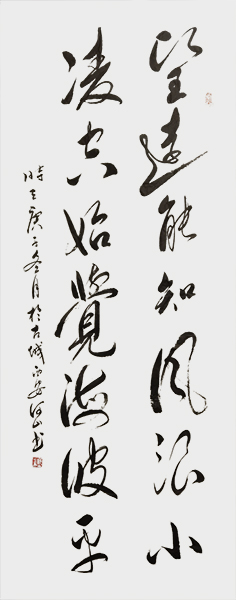 望远能知风浪小
凌空始觉海波平
时在庚子冬月于古城西安河山书